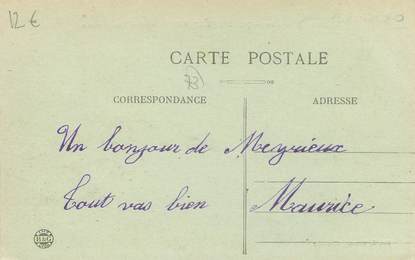 12 €
CARTE POSTALE
73
CORRESPONDANCE
ADRESSE
Un bonjour de Meyrieux
Tout vas bien Maurice
B&G